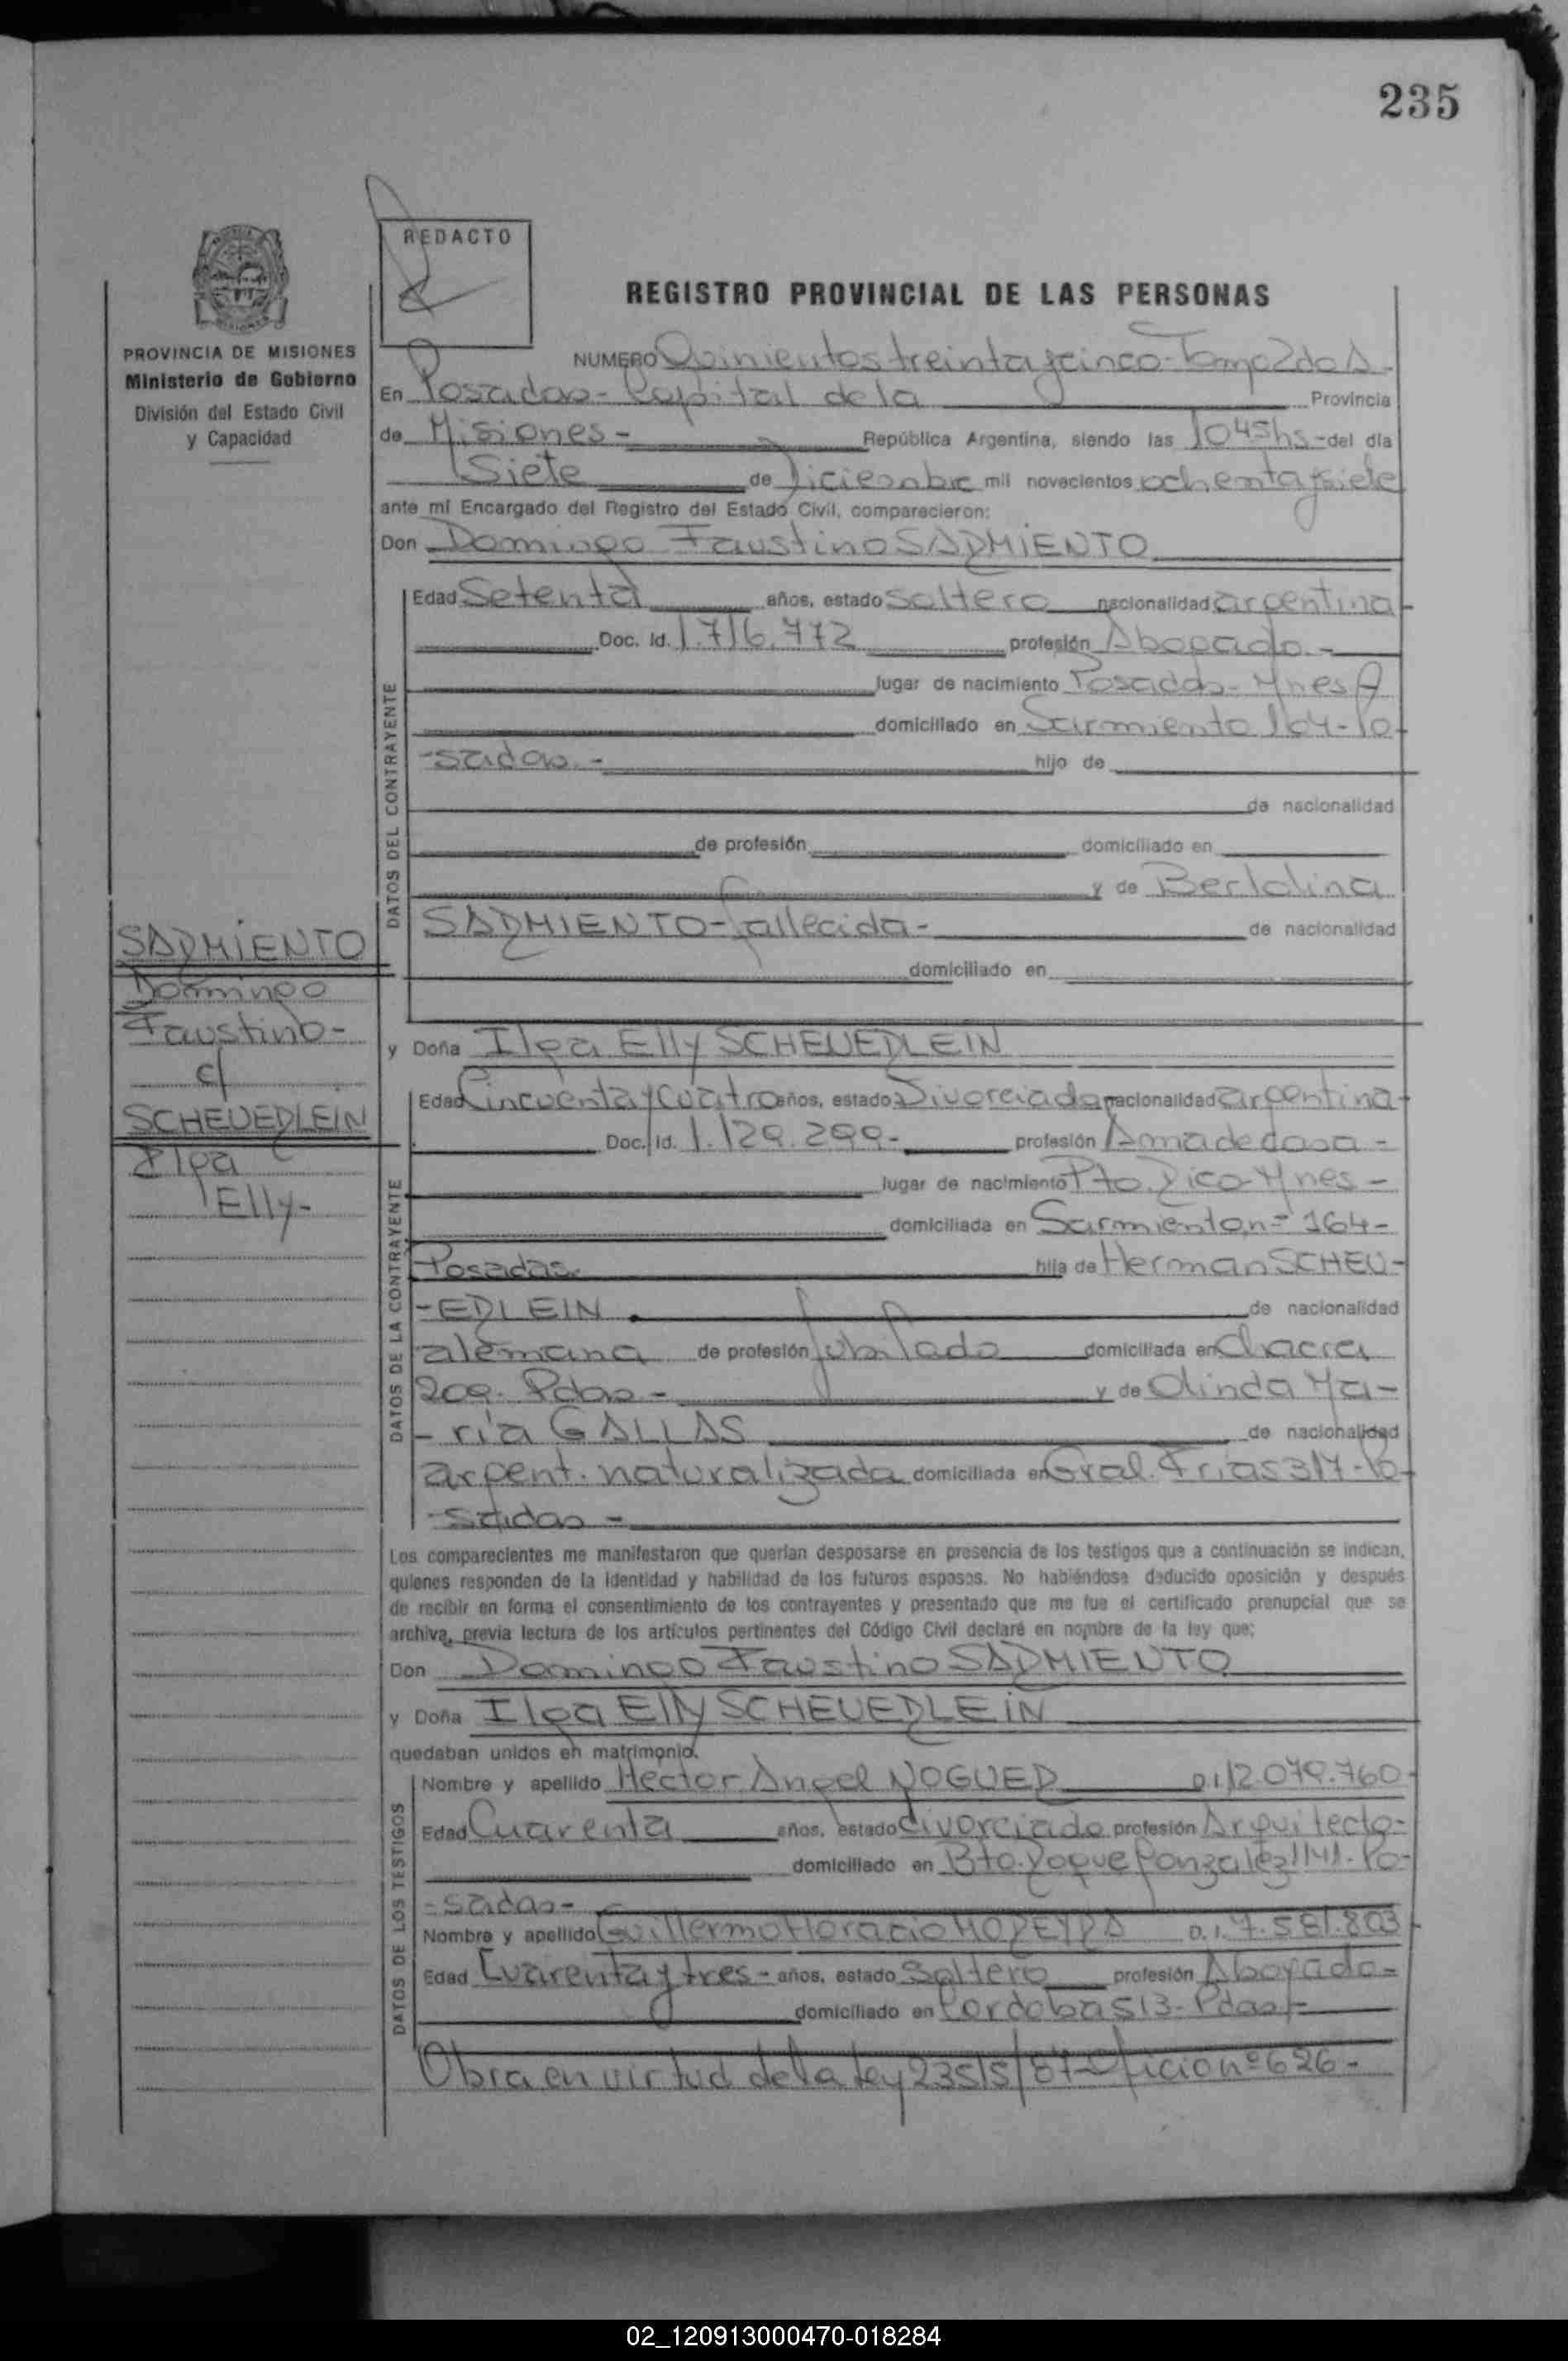 235
REDACTO
REGISTRO PROVINCIAL DE LAS PERSONAS
PROVINCIA DE MISIONES
Ministerio de Gobierno
División del Estado Civil
y Capacidad
NUMERO Quinientos treinta y cinco - Tomo 2do A -
En Posadas - Capital de la Provincia
de Misiones - República Argentina, siendo las 10 45 hs - del día
Siete de Diciembre mil novecientos ochenta y siete
ante mí Encargado del Registro del Estado Civil, comparecieron:
Don Domingo Faustino SARMIENTO
DATOS DEL CONTRAYENTE
Edad Setenta años, estado Soltero nacionalidad argentina
Doc. Id. 1.716.772 profesión Abogado -
lugar de nacimiento Posadas - Mnes
domiciliado en Sarmiento 164 - Po
- sadas - hijo de
de nacionalidad
de profesión domiciliado en
y de Bertolina
SARMIENTO - fallecida - de nacionalidad
domiciliado en
SARMIENTO
Domingo
Faustino -
c/
SCHEUERLEIN
Ilga
Elly -
y Doña Ilga Elly SCHEUERLEIN
DATOS DE LA CONTRAYENTE
Edad Cincuenta y cuatro años, estado Divorciada nacionalidad argentina -
Doc. Id. 1.129.299 - profesión Ama de casa -
lugar de nacimiento Pto. Rico - Mnes -
domiciliada en Sarmiento n= 164 -
Posadas - hija de Herman SCHEU -
- ERLEIN de nacionalidad
alemana de profesión jubilado domiciliada en Chacra
209 - Pdas - y de Olinda Ma -
- ría GALLAS de nacionalidad
argent. naturalizada domiciliada en Gral. Frias 317 - Po
- sadas -
Los comparecientes me manifestaron que querían desposarse en presencia de los testigos que a continuación se indican,
quienes responden de la identidad y habilidad de los futuros esposos. No habiéndose deducido oposición y después
de recibir en forma el consentimiento de los contrayentes y presentado que me fue el certificado prenupcial que se
archiva, previa lectura de los artículos pertinentes del Código Civil declaré en nombre de la ley que:
Don Domingo Faustino SARMIENTO
y Doña Ilga Elly SCHEUERLEIN
quedaban unidos en matrimonio.
DATOS DE LOS TESTIGOS
Nombre y apellido Hector Angel NOGUER D.I. 12.079.760
Edad Cuarenta años, estado divorciado profesión Arquitecto -
domiciliado en Bto. Roque Gonzalez 1141 - Po -
- sadas -
Nombre y apellido Guillermo Horacio MOREYRA D.I. 7.581.803
Edad Cuarenta y tres - años, estado Soltero profesión Abogado -
domiciliado en Cordoba 513 - Pdas -
Obra en virtud de la Ley 23515/87 - Oficio nº 626 -
02_120913000470-018284